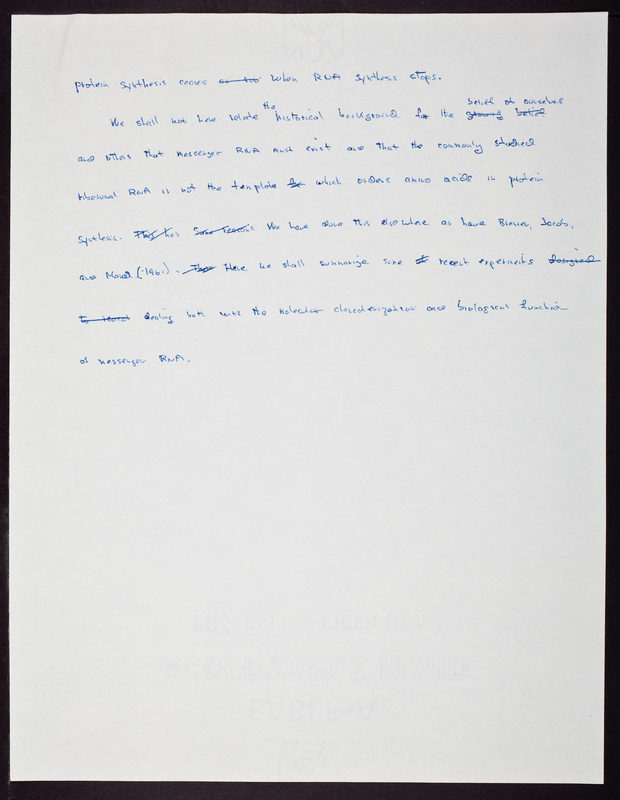 protein synthesis ceases as soo when RNA synthesis stops.
We shall not here relate the historical background for the growing belief belief of ourselves
and others that messenger RNA must exist and that the commonly studied
ribosomal RNA is not the template for which orders amino acids in protein
synthesis. This has We have done this elsewhere as have Brenner, Jacob,
and Monod (1961). These Here we shall summarize some recent experiments designed
to reveal dealing both with the molecular characterization and biological function
of messenger RNA.
EAGLE-A
ACCEPTANCE BOND